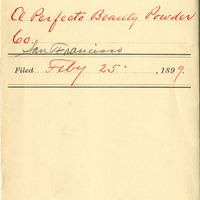 El Perfecto Beauty Powder
Co.
San Francisco
Filed Feby 25 , 1899.